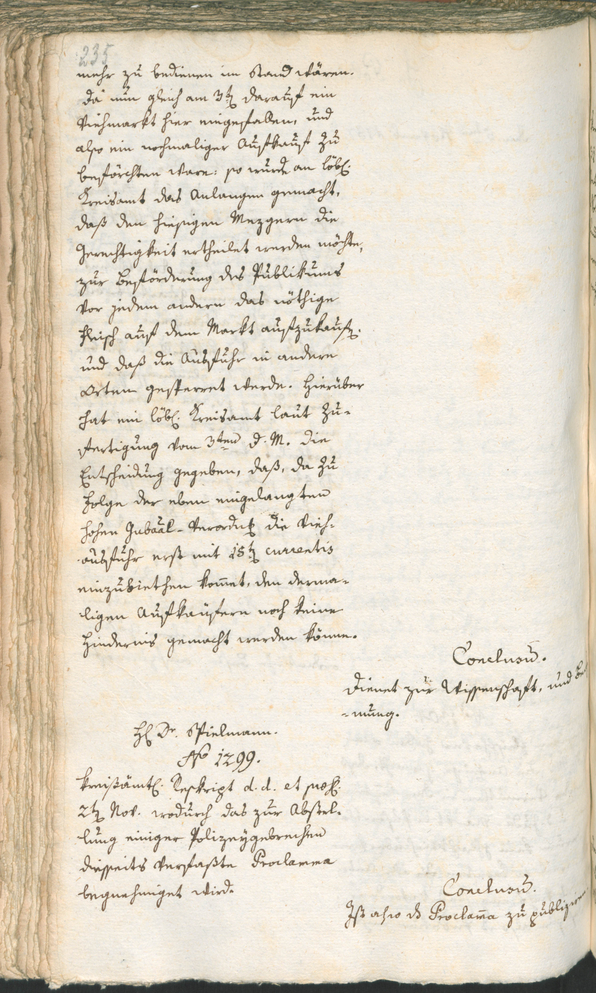 235
mehr zu bedienen im Stand wären.
Da nun gleich am 3t darauf ein
Viehmarkt hier eingefallen, und
also ein nochmaliger Aufkauf zu
beförchten ware: so wurde an löbl:
Kreisamt das Anlangen gemacht,
daß den hiesigen Mezgern die
Gerechtigkeit ertheilet werden möchte,
zur Beförderung des Publikums
vor jedem andern das nöthige
Fleisch auf dem Markt aufzukaufen.
und daß die Ausfuhr in andere
Orten gesperret werde. Hierüber
hat ein löbl: Kreisamt laut Zu-
fertigung vom 3ten d. M. die
Entscheidung gegeben, daß, da zu
Folge der eben eingelangten
hohen Gubaal-Verordng die Vieh-
ausfuhr erst mit 15t currentis
einzubiethen kommt, den derma-
ligen Aufkäufern noch keine
Hindernis gemacht werden könne.
Conclusum.
Dienet zur Wissenschaft, und
-mung.
H Dr. Spielmann.
No 1299.
Kreisämtl. Reskript d. d. et
2t Nov. wodurch das zur Abstel-
lung einiger Polizeygebrechen
diesseits verfaßte Proclamma
begnehmiget wird.
Conclusum.
Ist also das Proclama zu publiziren